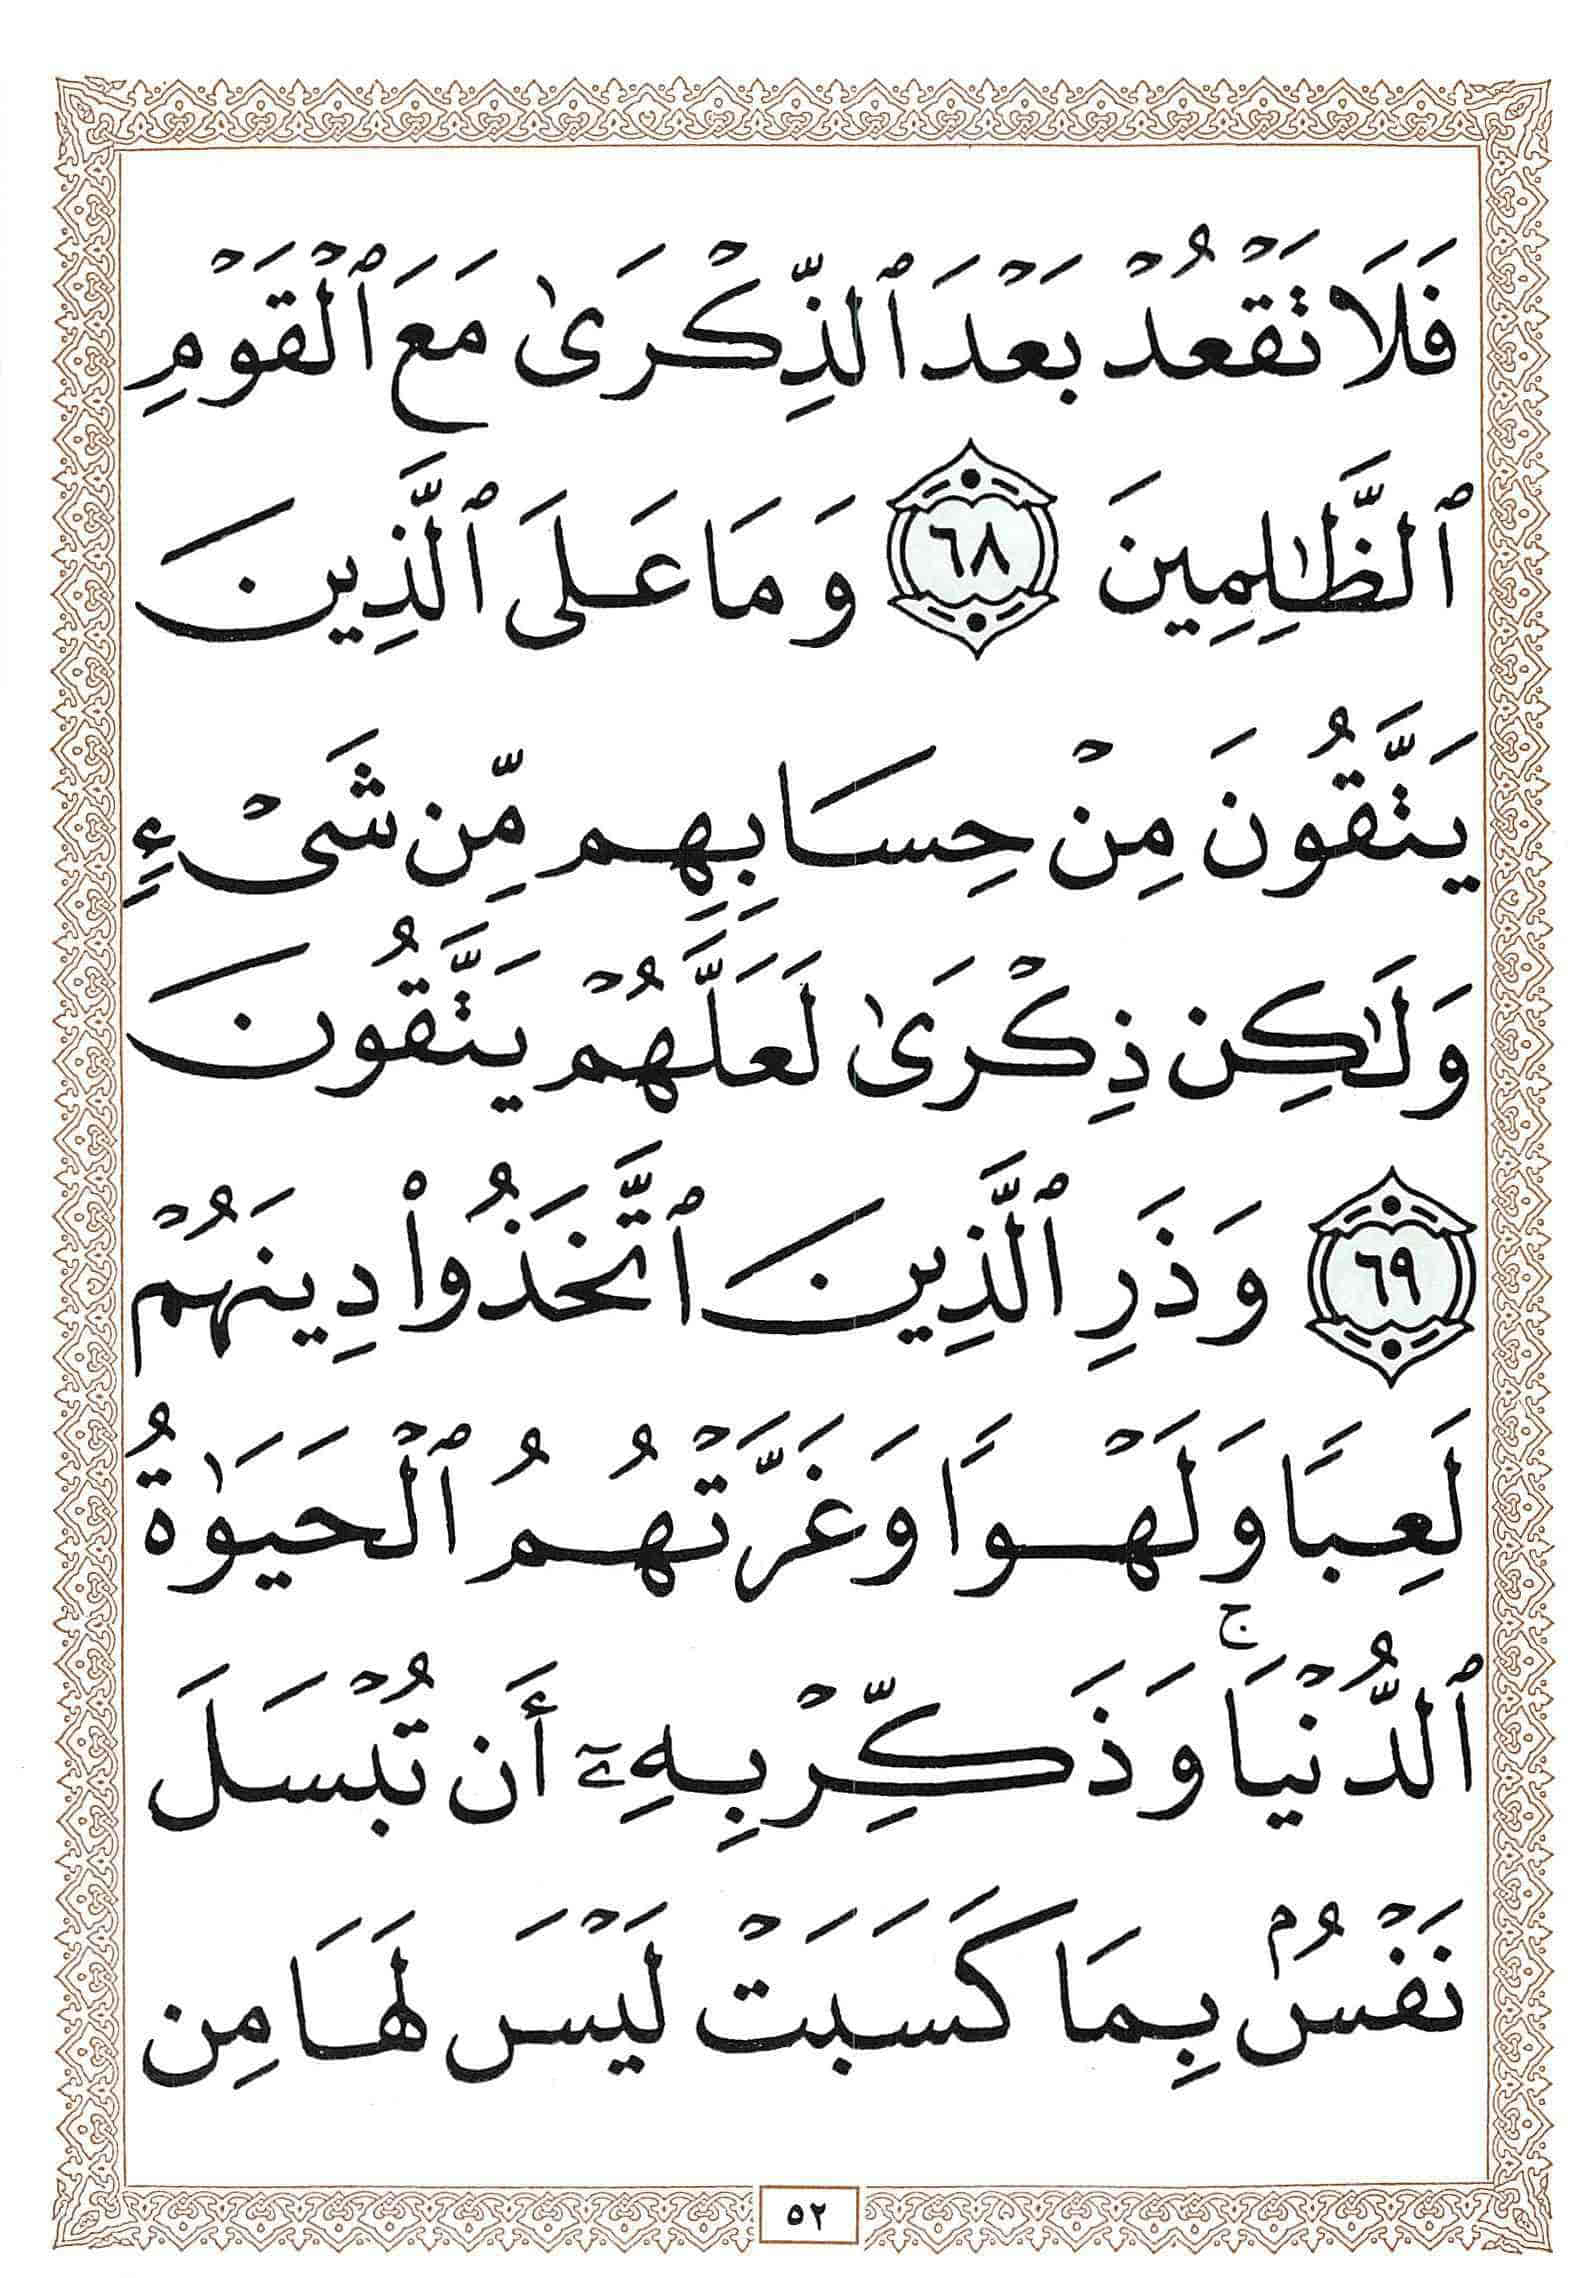 فَلَا تَقْعُدْ بَعْدَ ٱلذِّكْرَىٰ مَعَ ٱلْقَوْمِ
ٱلظَّـٰلِمِينَ ٦٨ وَمَا عَلَى ٱلَّذِينَ
يَتَّقُونَ مِنْ حِسَابِهِم مِّن شَىْءٍ
وَلَـٰكِن ذِكْرَىٰ لَعَلَّهُمْ يَتَّقُونَ
٦٩ وَذَرِ ٱلَّذِينَ ٱتَّخَذُوا۟ دِينَهُمْ
لَعِبًا وَلَهْوًا وَغَرَّتْهُمُ ٱلْحَيَوٰةُ
ٱلدُّنْيَا ۚ وَذَكِّرْ بِهِۦٓ أَن تُبْسَلَ
نَفْسٌۢ بِمَا كَسَبَتْ لَيْسَ لَهَا مِن
٥٢